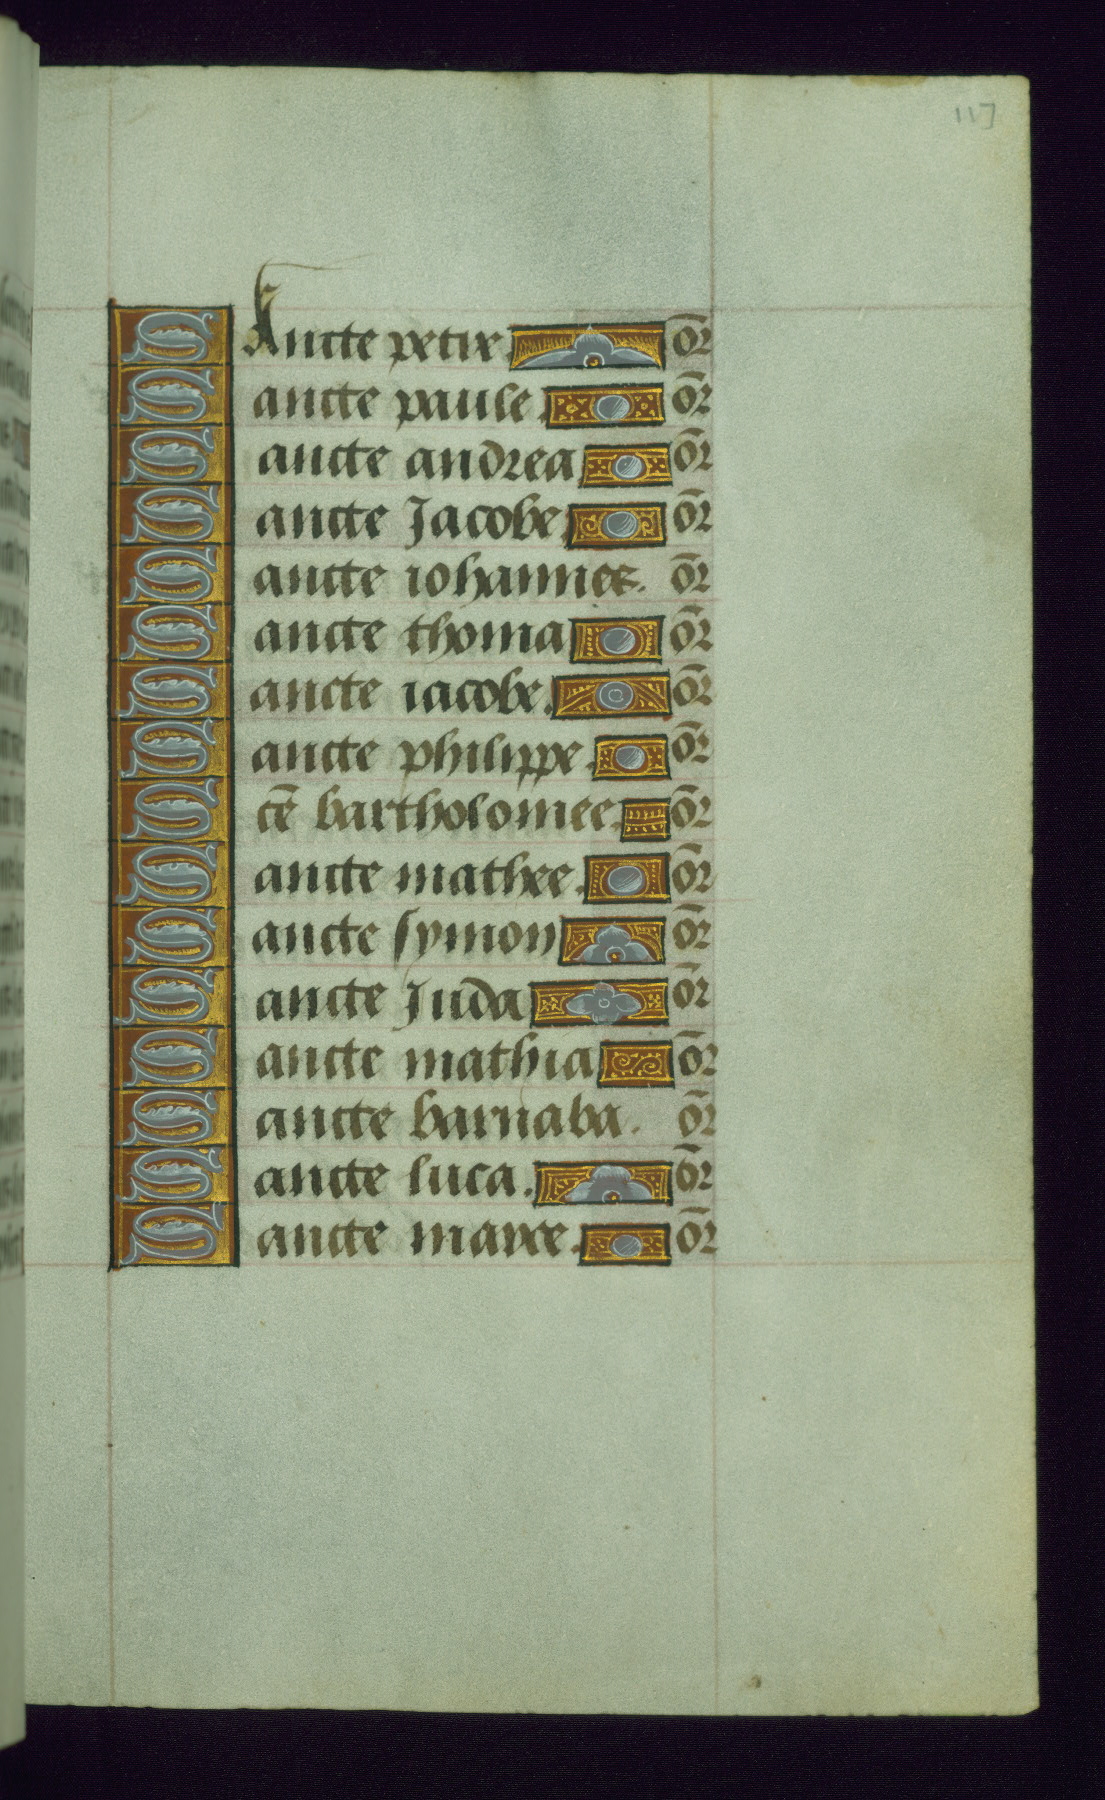 117
SAncte petre or̄
Sancte paule. or̄
Sancte andrea or̄
Sancte Jacobe or̄
Sancte iohannes. or̄
Sancte thoma or̄
Sancte iacobe. or̄
Sancte philippe. or̄
Sctē bartholomee. or̄
Sancte mathee. or̄
Sancte symon or̄
Sancte Juda or̄
Sancte mathia or̄
Sancte barnaba. or̄
Sancte luca. or̄
Sancte marce. or̄